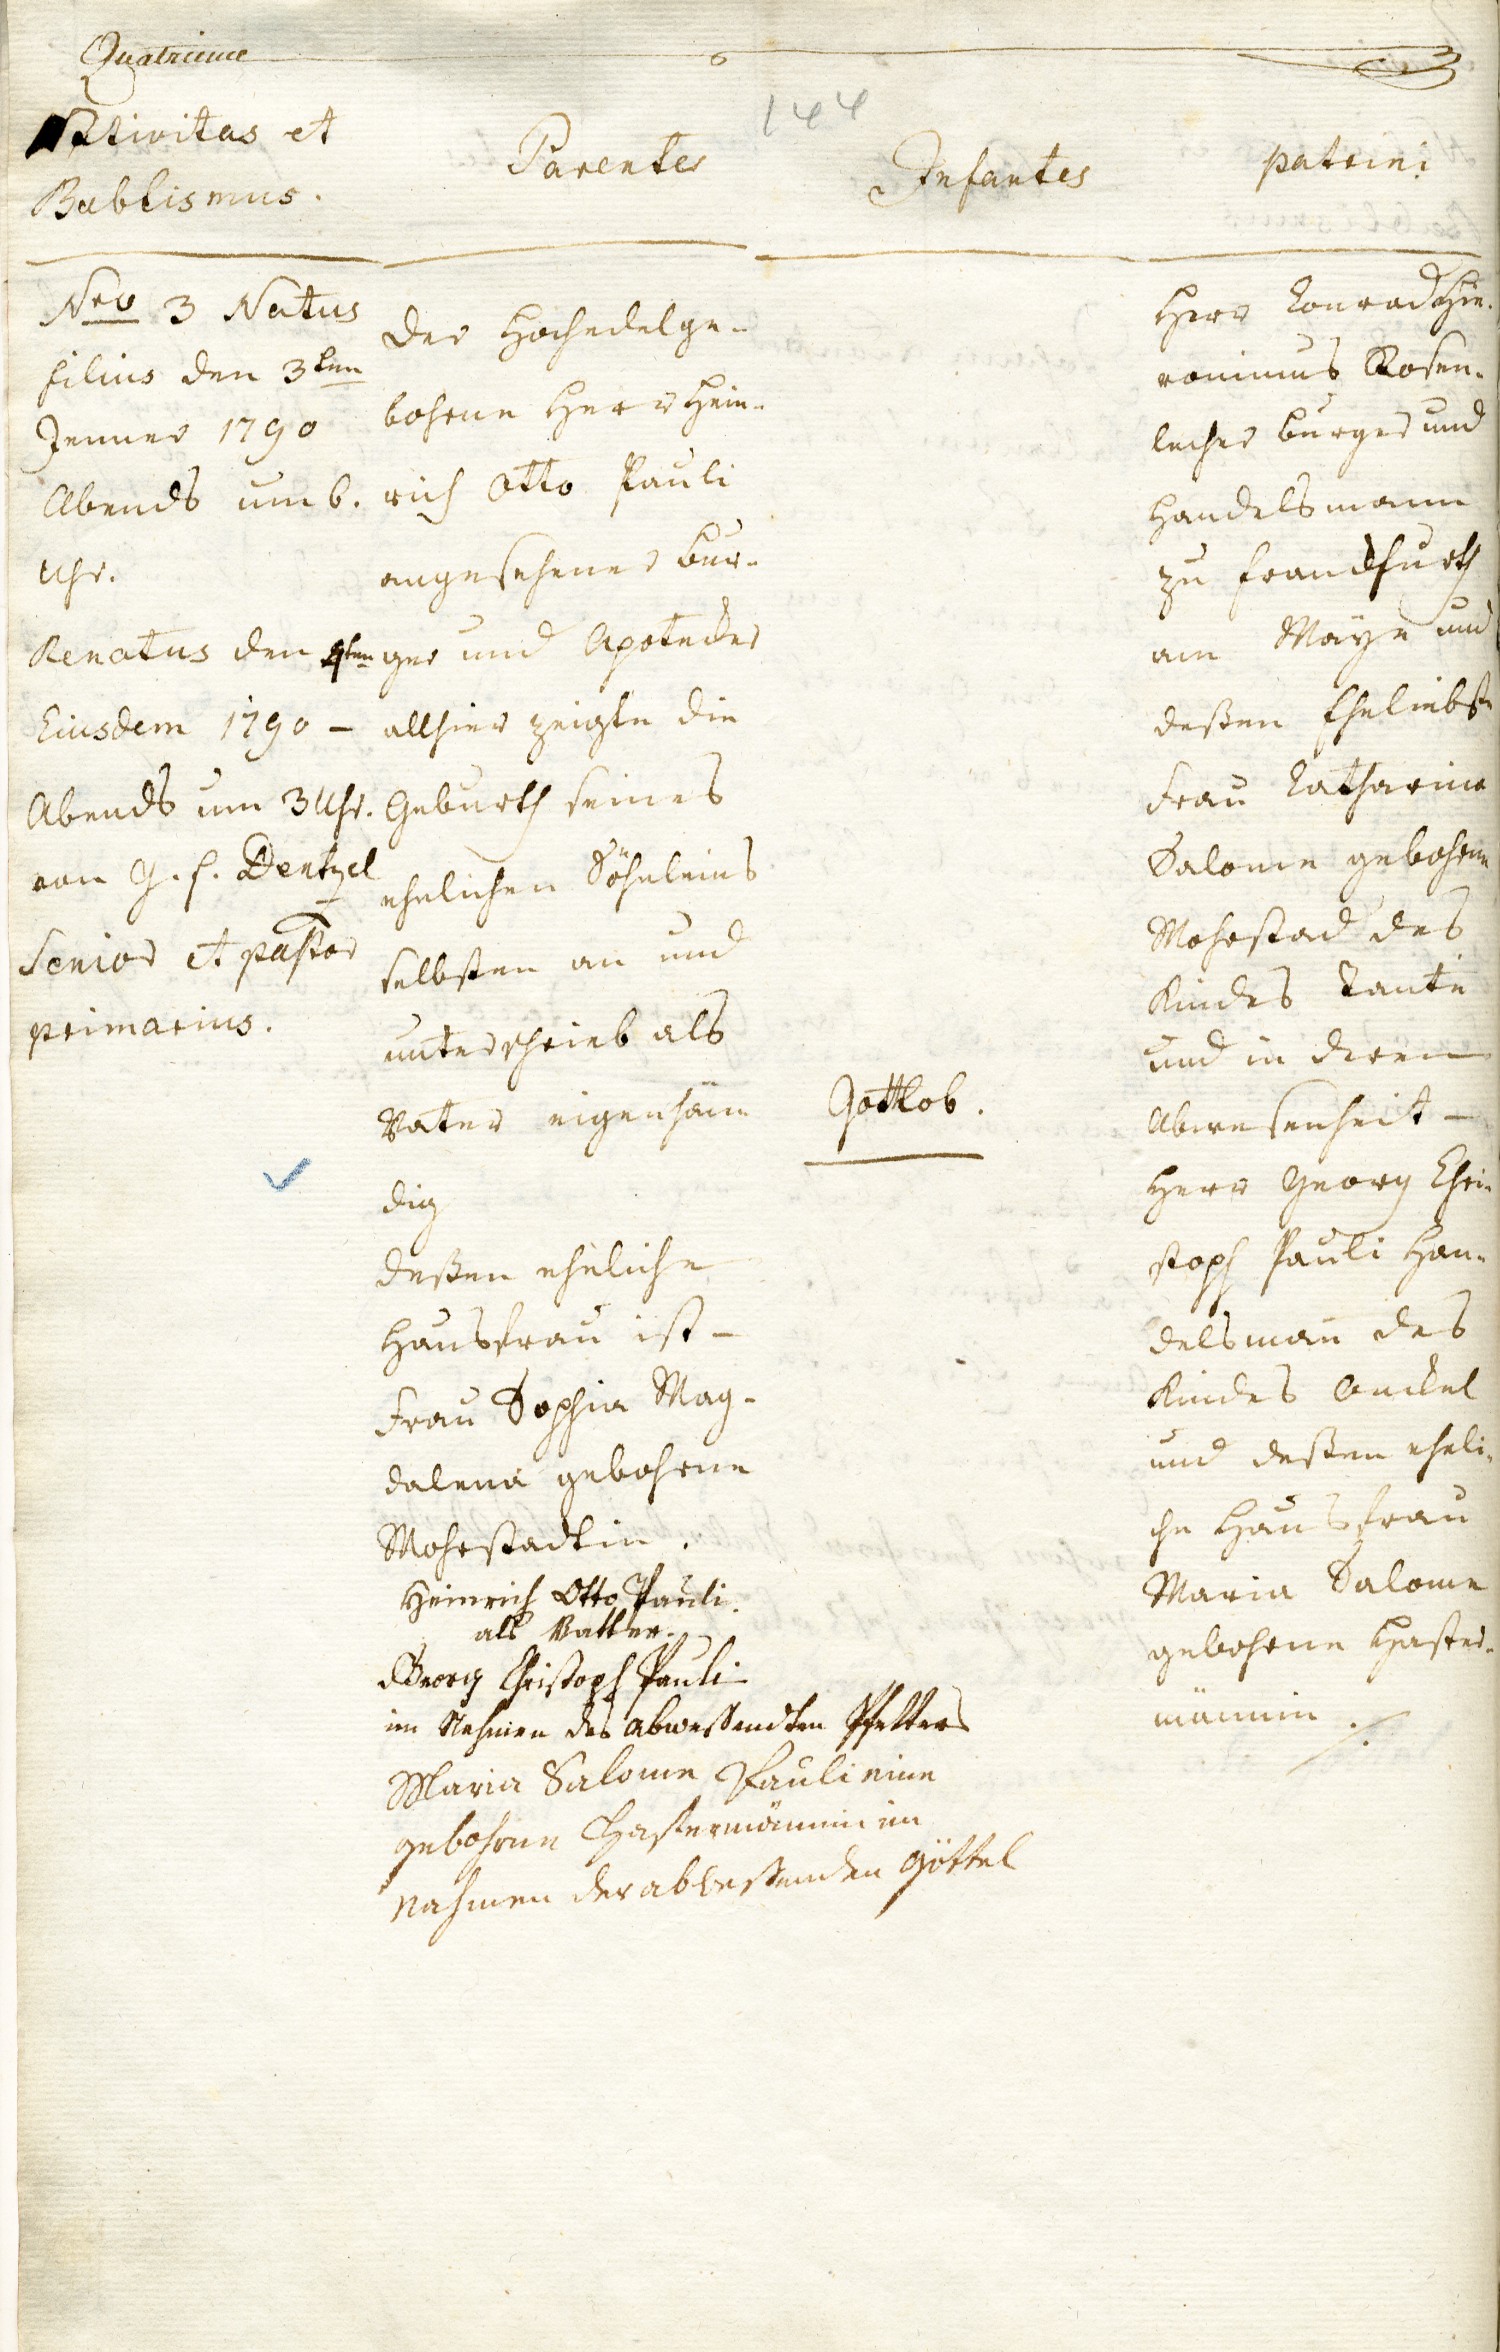 Quatrieme
144
Nativitas et
Babtismus.
Parentes
Infantes
patrini
Nro 3 Natus
filius den 3ten
Jenner 1790
Abends um 6.
Uhr.
Renatus den 4ten
Eiusdem 1790 –
Abends um 3 Uhr.
von G. F. Dentzel
Senior et pastor
primarius.
Der Hochedelge-
bohrne Herr Hein-
rich Otto Pauli
angesehener Bur-
ger und Apotecker
allhier zeigte die
Geburth seines
ehelichen Söhnleins
selbsten an und
unterschrieb als
Vater eigenhän-
dig
deßen eheliche
Hausfrau ist –
Frau Sophia Mag-
dalena gebohrne
Mohrstadtin.
Heinrich Otto Pauli.
als Vatter.
Georg Christoph Pauli
im Nahmen des abweßendten Pfetters
Maria Salome Pauli eine
gebohrne Hastermännin im
Nahmen der abweßenden Göttel
Gottlob.
Herr Conrad Hie-
ronimus Rosen-
lecher burger und
Handelsmann
zu Franckfurth
am Mayn und
deßen Eheliebste
Frau Catharina
Salome gebohrne
Mohrstad des
Kindes Tante
und in deren
Abwesenheit –
Herr Georg Chri-
stoph Pauli Han-
delsman̅ des
Kindes Onckel
und deßen eheli-
che Hausfrau
Maria Salome
gebohrne Haster-
männin ./.